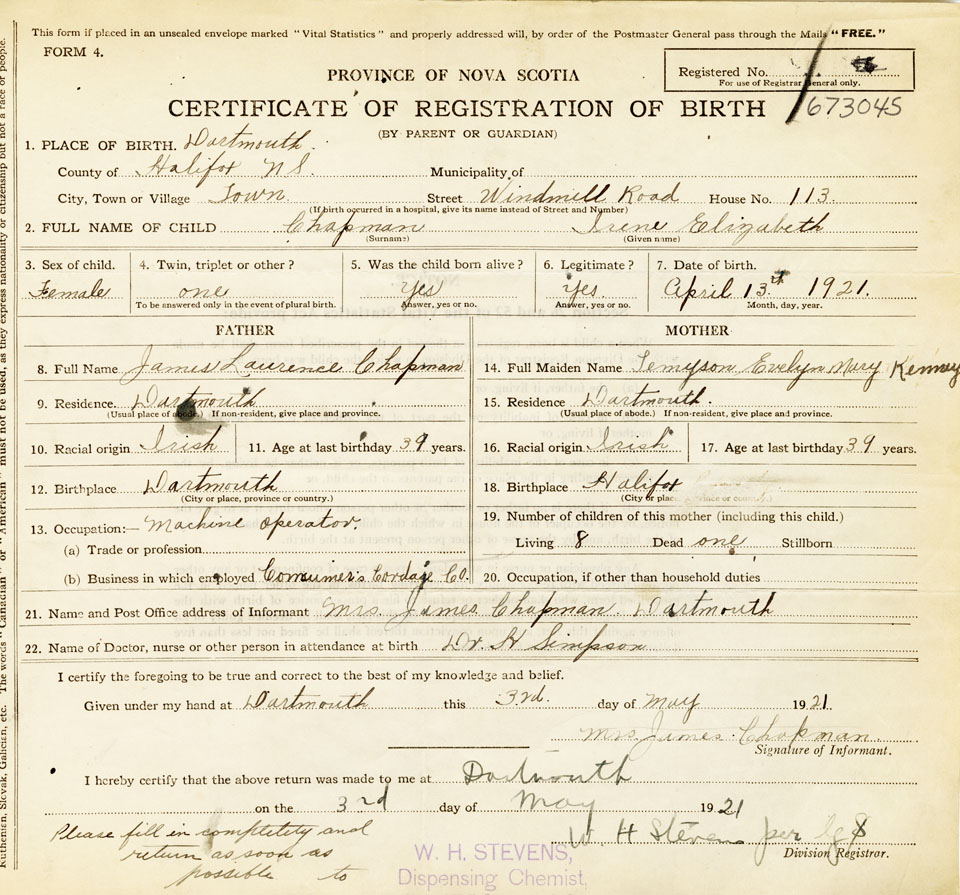 This form if placed in an unsealed envelope marked "Vital Statistics" and properly addressed will, by order of the Postmaster General pass through the Mails "FREE."
FORM 4.
Registered No.
For use of Registrar General only.
PROVINCE OF NOVA SCOTIA
CERTIFICATE OF REGISTRATION OF BIRTH
673045
(BY PARENT OR GUARDIAN)
1. PLACE OF BIRTH. Dartmouth.
County of Halifax N S. Municipality of
City, Town or Village Town. Street Windmill Road House No. 113.
(If birth occurred in a hospital, give its name instead of Street and Number)
2. FULL NAME OF CHILD Chapman Irene Elizabeth
(Surname) (Given name)
3. Sex of child. 4. Twin, triplet or other? 5. Was the child born alive? 6. Legitimate? 7. Date of birth.
Female one Yes Yes. April 13 1921.
To be answered only in the event of plural birth. Answer, yes or no. Answer, yes or no. Month, day, year.
FATHER MOTHER
8. Full Name James Laurence Chapman 14. Full Maiden Name Evelyn Mary
9. Residence. Dartmouth 15. Residence Dartmouth.
(Usual place of abode.) If non-resident, give place and province. (Usual place of abode.) If non-resident, give place and province.
10. Racial origin Irish 11. Age at last birthday 39 years. 16. Racial origin Irish 17. Age at last birthday 39 years.
12. Birthplace Dartmouth 18. Birthplace Halifax
(City or place, province or country.) (City or place, province or country.)
13. Occupation:— Machine operator. 19. Number of children of this mother (including this child.)
(a) Trade or profession Living 8 Dead one Stillborn
(b) Business in which employed Consumer's Cordage Co. 20. Occupation, if other than household duties
21. Name and Post Office address of Informant Mrs. James Chapman. Dartmouth
22. Name of Doctor, nurse or other person in attendance at birth Dr. H Simpson
I certify the foregoing to be true and correct to the best of my knowledge and belief.
Given under my hand at Dartmouth this 3rd. day of May 1921.
Mrs James Chapman.
Signature of Informant.
I hereby certify that the above return was made to me at Dartmouth
on the 3rd day of May 1921
W. H Stevens per
Division Registrar.
Please fill in completity and
return as soon as
possible to
W. H. STEVENS,
Dispensing Chemist,
The words "Canadian" or "American" must not be used, as they express nationality or citizenship but not a race or people.
Ruthenien, Slovak, Galician, etc.